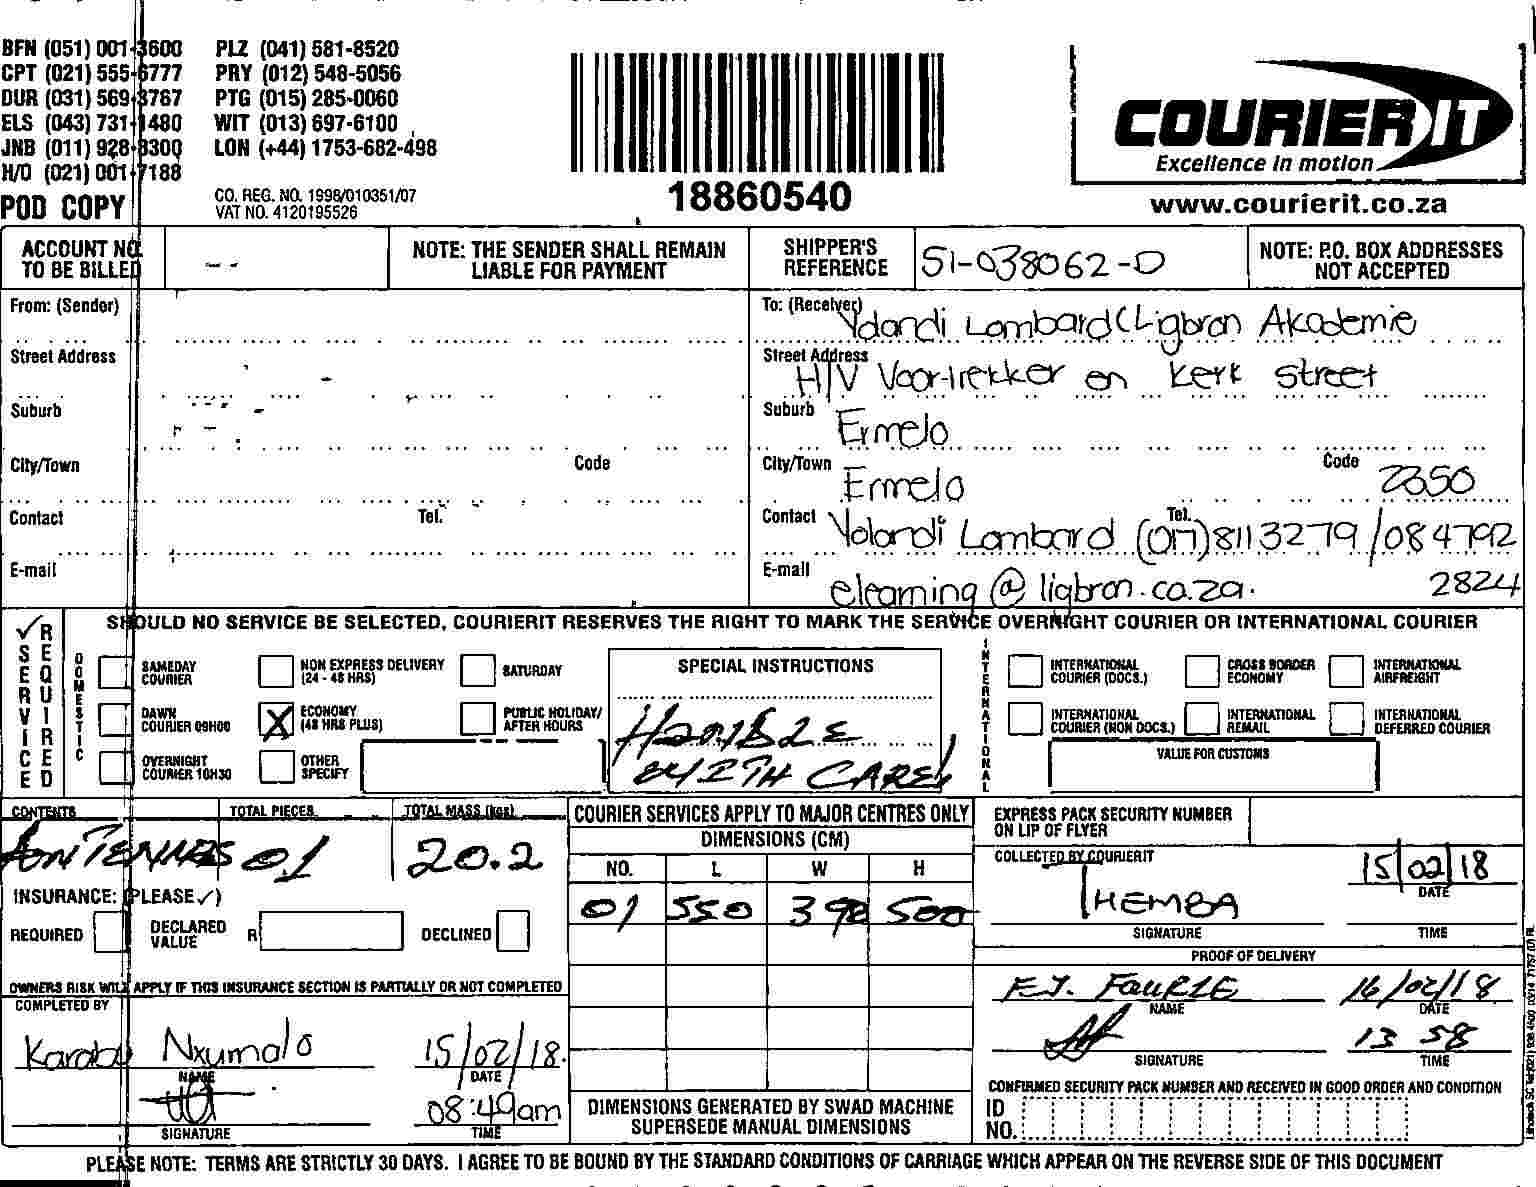 BFN (051) 001-3600 PLZ (041) 581-8520
CPT (021) 555-6777 PRY (012) 548-5056
DUR (031) 569-3767 PTG (015) 285-0060
ELS (043) 731-1480 WIT (013) 697-6100
JNB (011) 928-8300 LON (+44) 1753-682-498
H/O (021) 001-7188
POD COPY
CO. REG. NO. 1998/010351/07
VAT NO. 4120195526
18860540
COURIER IT
Excellence in motion
www.courierit.co.za
ACCOUNT NO. TO BE BILLED
NOTE: THE SENDER SHALL REMAIN LIABLE FOR PAYMENT
SHIPPER'S REFERENCE SI-038062-D
NOTE: P.O. BOX ADDRESSES NOT ACCEPTED
From: (Sender)
Street Address
Suburb
City/Town Code
Contact Tel.
E-mail
To: (Receiver) Yolandi Lombard (Ligbron Akademie
Street Address H/V Voortrekker en Kerk Street
Suburb Ermelo
City/Town Ermelo Code 2350
Contact Yolandi Lombard Tel. (017)8113279/084792
2824
E-mail elearning@ligbron.co.za.
SERVICE REQUIRED
SHOULD NO SERVICE BE SELECTED, COURIERIT RESERVES THE RIGHT TO MARK THE SERVICE OVERNIGHT COURIER OR INTERNATIONAL COURIER
DOMESTIC
SAMEDAY COURIER
NON EXPRESS DELIVERY (24 - 48 HRS)
SATURDAY
DAWN COURIER 09H00
X ECONOMY (48 HRS PLUS)
PUBLIC HOLIDAY/ AFTER HOURS
OVERNIGHT COURIER 10H30
OTHER SPECIFY
SPECIAL INSTRUCTIONS
WITH CARE!
INTERNATIONAL
INTERNATIONAL COURIER (DOCS.)
CROSS BORDER ECONOMY
INTERNATIONAL AIRFREIGHT
INTERNATIONAL COURIER (NON DOCS.)
INTERNATIONAL REMAIL
INTERNATIONAL DEFERRED COURIER
VALUE FOR CUSTOMS
CONTENTS
TOTAL PIECES 01
TOTAL MASS (kgs) 20.2
INSURANCE: (PLEASE ✓)
REQUIRED
DECLARED VALUE R
DECLINED
OWNERS RISK WILL APPLY IF THIS INSURANCE SECTION IS PARTIALLY OR NOT COMPLETED
COMPLETED BY
Karabo Nxumalo 15/02/18.
NAME DATE
08:49am
SIGNATURE TIME
COURIER SERVICES APPLY TO MAJOR CENTRES ONLY
DIMENSIONS (CM)
NO. L W H
01 550 390 500
DIMENSIONS GENERATED BY SWAD MACHINE
SUPERSEDE MANUAL DIMENSIONS
EXPRESS PACK SECURITY NUMBER ON LIP OF FLYER
COLLECTED BY COURIERIT
THEMBA 15/02/18
DATE
SIGNATURE TIME
PROOF OF DELIVERY
F.J. FOURIE 16/02/18
NAME DATE
13 58
SIGNATURE TIME
CONFIRMED SECURITY PACK NUMBER AND RECEIVED IN GOOD ORDER AND CONDITION
ID NO.
PLEASE NOTE: TERMS ARE STRICTLY 30 DAYS. I AGREE TO BE BOUND BY THE STANDARD CONDITIONS OF CARRIAGE WHICH APPEAR ON THE REVERSE SIDE OF THIS DOCUMENT